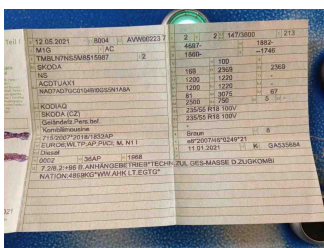 Teil I
12.05.2021 8004 AVW00223 7
M1G AC
TMBLN7NS5M8515987 2
SKODA
NS
ACDTUAX1
KODIAQ
SKODA (CZ)
Geländefz.Pers.bef.
Kombilimousine
715/2007*2018/1832AP
EURO6;WLTP;AP;PI/CI; M, N1 I
Diesel
0002 36AP 1968
7.2/8.2:+96 B.ANHÄNGEBETRIEB*TECHN.ZUL.GES-MASSE D.ZUGKOMBI
NATION:4869KG*WW.AHK LT.EGTG*
2 2 147/3800 213
4697- 1882-
1660- --1746
100
169 2369 2369
1200 1220
1200 1220
81 3075 67
2500 750 5 -
235/55 R18 100V
235/55 R18 100V
Braun 8
e8*2007/46*0249*21
11.01.2021 K GA53568A